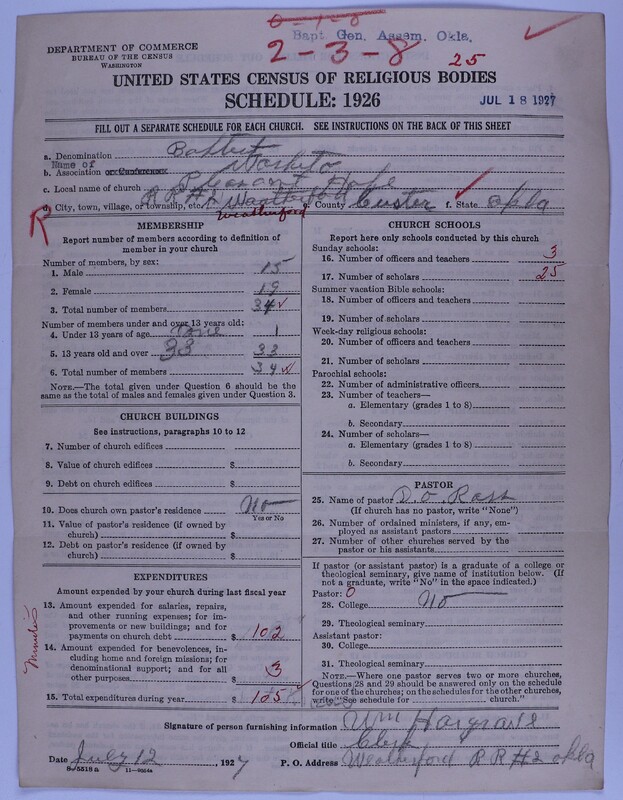 Bapt. Gen. Assem. Okla.
2-3-8
25
DEPARTMENT OF COMMERCE
BUREAU OF THE CENSUS
WASHINGTON
UNITED STATES CENSUS OF RELIGIOUS BODIES
SCHEDULE: 1926
JUL 18 1927
FILL OUT A SEPARATE SCHEDULE FOR EACH CHURCH. SEE INSTRUCTIONS ON THE BACK OF THIS SHEET
a. Denomination Baptist
Name of
b. Association or Conference
c. Local name of church Pleasant Hope
d. City, town, village, or township, etc. RR#2 Weatherford e. County Custer f. State Okla
Weatherford
R
MEMBERSHIP
Report number of members according to definition of
member in your church
Number of members, by sex:
1. Male 15
2. Female 19
3. Total number of members 34
Number of members under and over 13 years old:
4. Under 13 years of age one 1
5. 13 years old and over 33 33
6. Total number of members 34
NOTE.—The total given under Question 6 should be
the same as the total of males and females given under Question 3.
CHURCH BUILDINGS
See instructions, paragraphs 10 to 12
7. Number of church edifices
8. Value of church edifices $
9. Debt on church edifices $
10. Does church own pastor's residence No
Yes or No
11. Value of pastor's residence (if owned by
church) $
12. Debt on pastor's residence (if owned by
church) $
EXPENDITURES
Amount expended by your church during last fiscal year
13. Amount expended for salaries, repairs,
and other running expenses; for im-
provements or new buildings; and for
payments on church debt $ 102
14. Amount expended for benevolences, in-
cluding home and foreign missions; for
denominational support; and for all
other purposes $ 3
15. Total expenditures during year $ 105
Minutes
CHURCH SCHOOLS
Report here only schools conducted by this church
Sunday schools:
16. Number of officers and teachers 3
17. Number of scholars 25
Summer vacation Bible schools:
18. Number of officers and teachers
19. Number of scholars
Week-day religious schools:
20. Number of officers and teachers
21. Number of scholars
Parochial schools:
22. Number of administrative officers
23. Number of teachers—
a. Elementary (grades 1 to 8)
b. Secondary
24. Number of scholars—
a. Elementary (grades 1 to 8)
b. Secondary
PASTOR
25. Name of pastor D. O.
(If church has no pastor, write "None")
26. Number of ordained ministers, if any, em-
ployed as assistant pastors
27. Number of other churches served by the
pastor or his assistants
If pastor (or assistant pastor) is a graduate of a college or
theological seminary, give name of institution below. (If
not a graduate, write "No" in the space indicated.)
Pastor: 0
28. College No
29. Theological seminary
Assistant pastor:
30. College
31. Theological seminary
NOTE.—Where one pastor serves two or more churches,
Questions 28 and 29 should be answered only on the schedule
for one of the churches; on the schedules for the other churches,
write "See schedule for church."
Signature of person furnishing information Wm Hargrave
Official title Clerk
Date July 12, 1927 P. O. Address Weatherford RR #2 Okla
8-5518 a